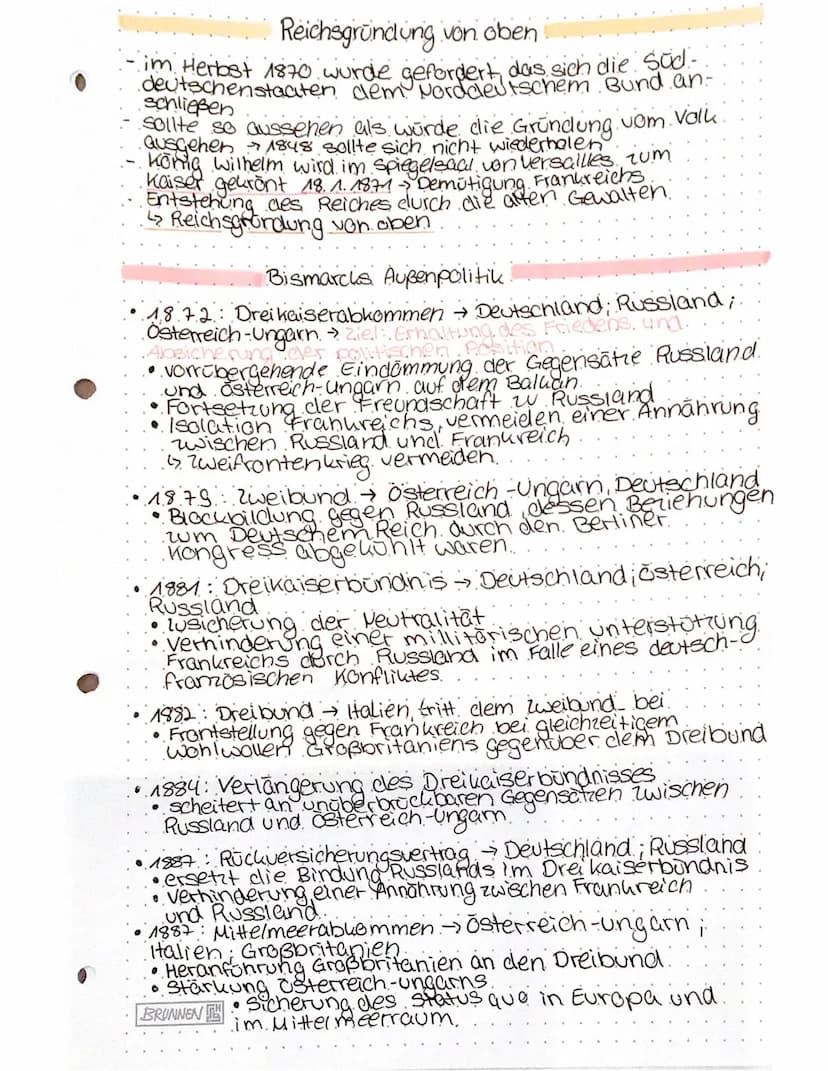 Reichsgründung von oben
- im Herbst 1870 wurde gefordert, das sich die Süd-
deutschenstaaten dem Norddeutschem Bund an-
schließen
- sollte so aussehen als würde die Gründung vom Volk
ausgehen → 1848 sollte sich nicht wiederholen
- König Wilhelm wird im Spiegelsaal von Versailles zum
Kaiser gekrönt 18.1.1871 → Demütigung Frankreichs
- Entstehung des Reiches durch die alten Gewalten
↳ Reichsgründung von oben
Bismarcks Außenpolitik
• 1872: Dreikaiserabkommen → Deutschland; Russland;
Österreich-Ungarn → Ziel: Erhaltung des Friedens und
Absicherung der politischen Position
• vorrübergehende Eindämmung der Gegensätze Russland
und Österreich-Ungarn auf dem Balkan
• Fortsetzung der Freundschaft zu Russland
• Isolation Frankreichs, vermeiden einer Annährung
zwischen Russland und Frankreich
↳ Zweifrontenkrieg vermeiden
• 1879: Zweibund → Österreich-Ungarn, Deutschland
• Blockbildung gegen Russland, dessen Beziehungen
zum Deutschem Reich durch den Berliner
Kongress abgekühlt waren
• 1881: Dreikaiserbündnis → Deutschland; Österreich;
Russland
• Zusicherung der Neutralität
• Verhinderung einer millitärischen unterstützung
Frankreichs durch Russland im Falle eines deutsch-
französischen Konfliktes
• 1882: Dreibund → Italien tritt dem Zweibund bei
• Frontstellung gegen Frankreich bei gleichzeitigem
Wohlwollen Großbritaniens gegenüber dem Dreibund
• 1884: Verlängerung des Dreikaiserbündnisses
• scheitert an unüberbrückbaren Gegensätzen zwischen
Russland und Österreich-Ungarn
• 1887: Rückversicherungsvertrag → Deutschland; Russland
• ersetzt die Bindung Russlands im Dreikaiserbündnis
• Verhinderung einer Annährung zwischen Frankreich
und Russland
• 1887: Mittelmeerabkommen → Österreich-ungarn;
Italien; Großbritanien
• Heranführung Großbritanien an den Dreibund
• Stärkung Österreich-ungarns
• Sicherung des Status quo in Europa und
im Mittelmeerraum.
BRUNNEN